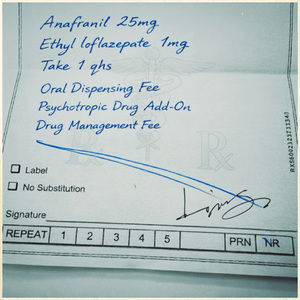 Anafranil 25mg
Ethyl loflazepate 1mg
Take 1 qhs
Oral Dispensing Fee
Psychotropic Drug Add-On
Drug Management Fee
Label
No Substitution
Signature
REPEAT 1 2 3 4 5 PRN NR